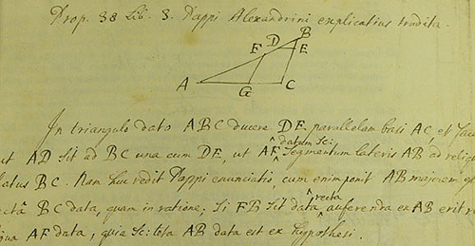 Prop. 38 Lib. 3. Pappi Alexandrini explicatius tradita.
B
D
F E
A G C
In triangulo dato ABC ducere DE parallelam basi AC, et
datum sc:
ut AD sit ad BC una cum DE, ut AF segmentum lateris AB ad
latus BC. Nam huc redit Pappi enunciatio, cum enim ponit AB majorem
recta
BC data, quam in ratione, si FB sit data auferenda ex AB erit
AF data, quia sc: tota AB data est ex hypothesi.